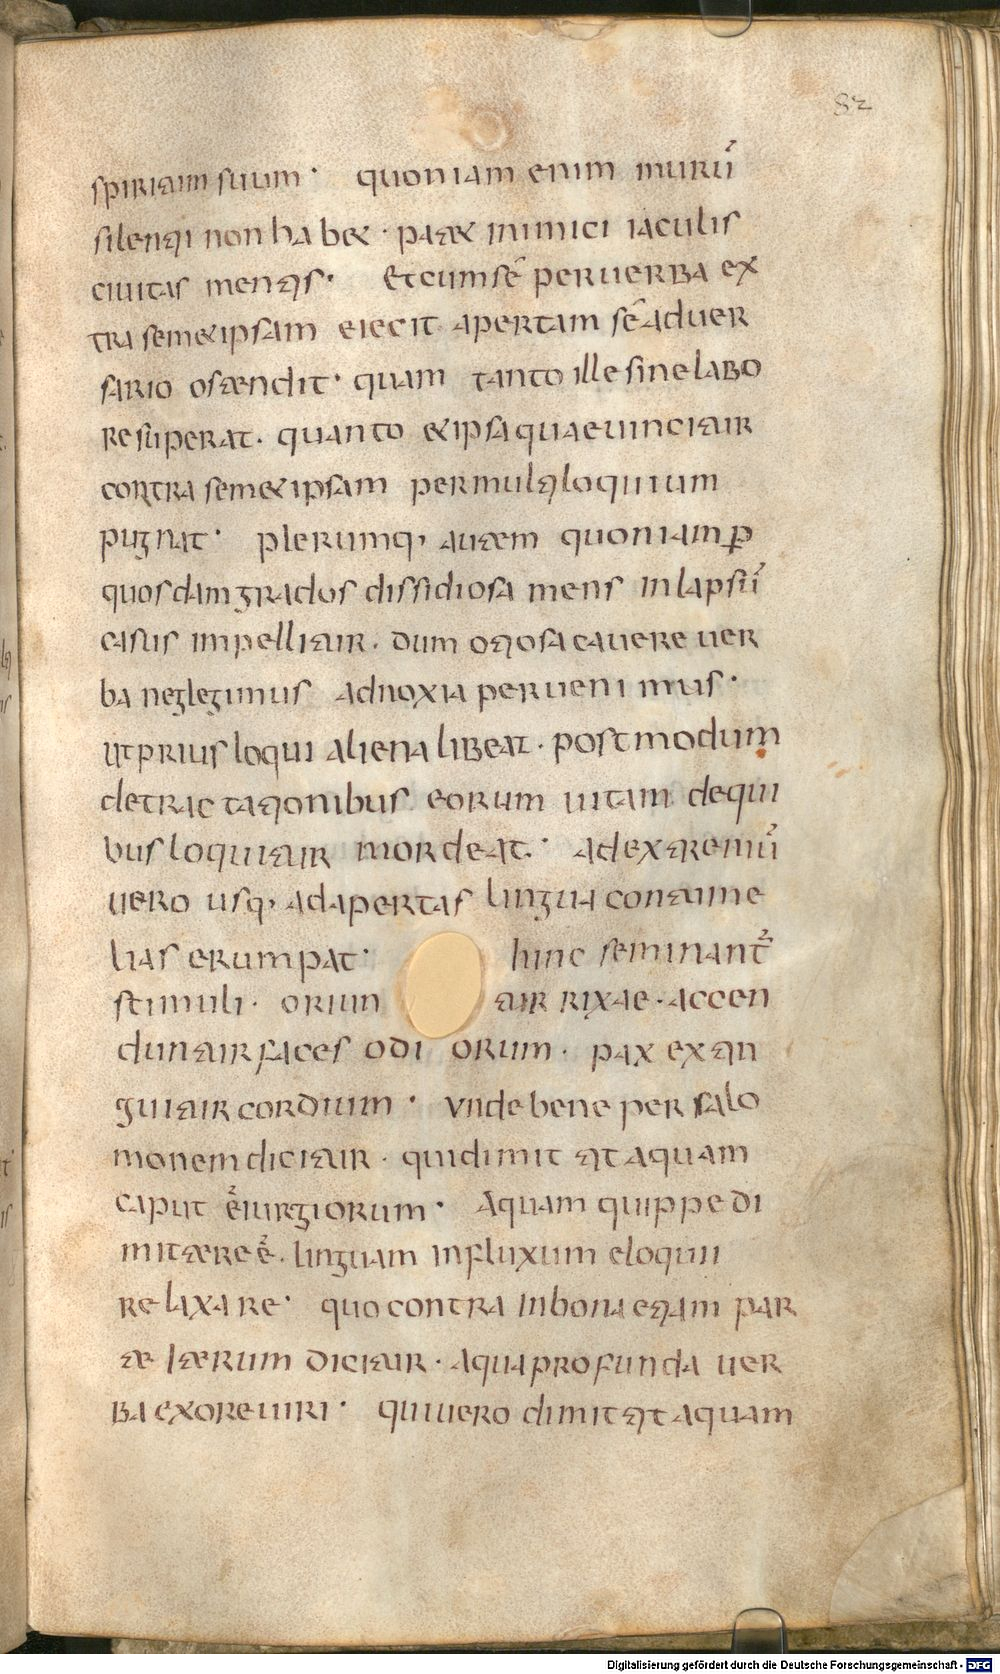 82
spiritum suum · quoniam enim murū
silenti non habet · patet inimici iaculis
civitas mentis · Et cum sē per uerba ex
tra semetipsam eiecit apertam sē aduer
sario ostendit · quam tanto ille sine labo
re superat · quanto et ipsa quae uincitur
contra semetipsam per multiloquium
pugnat · plerumq, autem quoniam ꝑ
quosdam grados dissidiosa mens in lapsū
casus impellitur · dum otiosa cauere uer
ba neglegimus ad noxia peruenimus ·
ut prius loqui aliena libeat · postmodum
detractationibus eorum uitam de qui
bus loquitur mordeat · ad extremū
uero usq, ad apertas lingua contume
lias erumpat · hinc seminant̄
stimuli · oriun tur rixae · accen
duntur faces odi orum · pax extin
guitur cordium · Vnde bene per salo
monem dicitur · qui dimittit aquam
caput ē iurgiorum · Aquam quippe di
mittere ē · linguam in fluxum eloquii
relaxare · quo contra in bonam etiam par
te iterum dicitur · aqua profunda uer
ba ex ore uiri · qui uero dimittit aquam
Digitalisierung gefördert durch die Deutsche Forschungsgemeinschaft - DFG